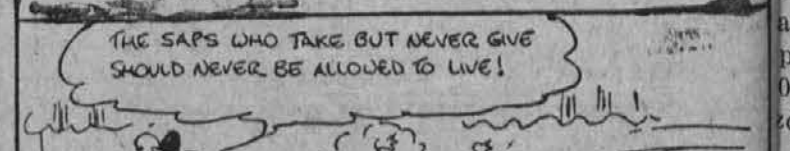 THE SAPS WHO TAKE BUT NEVER GIVE
SHOULD NEVER BE ALLOWED TO LIVE!
a
p